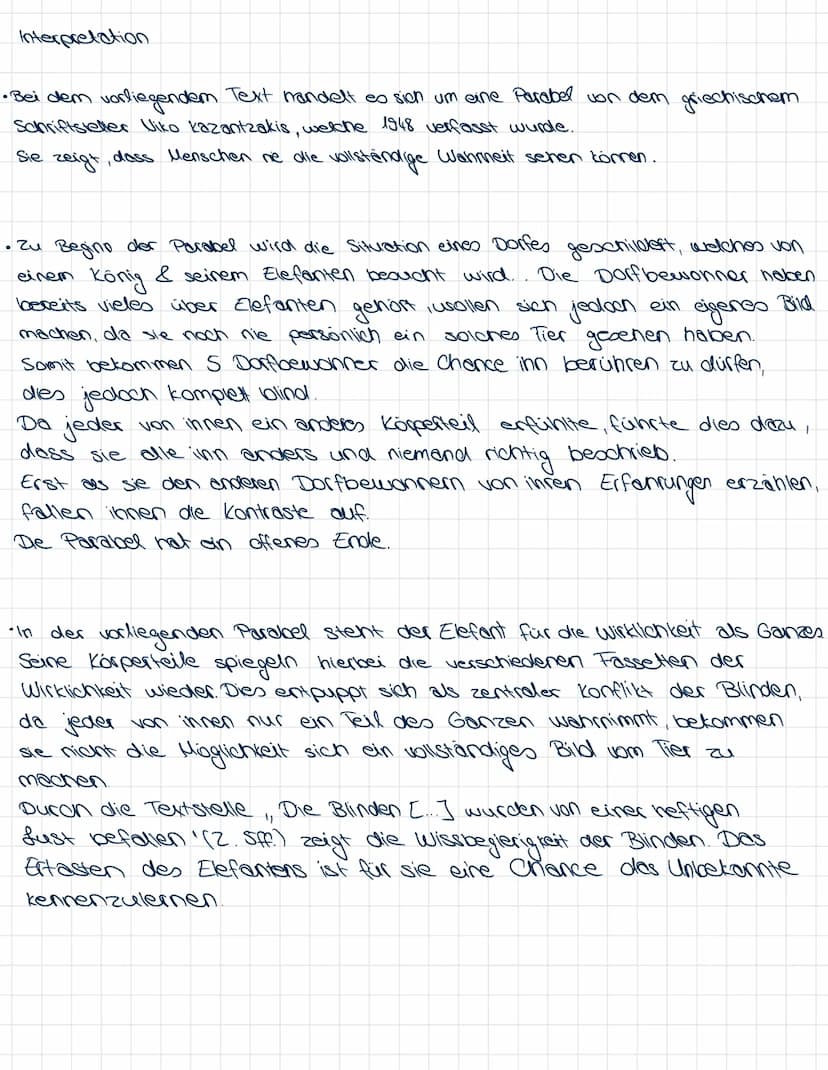 Interpretation
• Bei dem vorliegendem Text handelt es sich um eine Parabel von dem griechischem
Schriftsteller Niko Kazantzakis, welche 1948 verfasst wurde.
Sie zeigt, dass Menschen nie die vollständige Wahrheit sehen können.
• Zu Begino der Parabel wird die Situation eines Dorfes geschildert, welches von
einem König & seinem Elefanten besucht wird. Die Dorfbewohner haben
bereits vieles über Elefanten gehört, wollen sich jedoch ein eigenes Bild
machen, da sie noch nie persönlich ein solches Tier gesehen haben.
Somit bekommen 5 Dorfbewohner die Chance ihn berühren zu dürfen,
dies jedoch komplett blind.
Da jeder von ihnen ein anderes Körperteil erfühlte, führte dies dazu,
dass sie alle ihn anders und niemand richtig beschrieb.
Erst als sie den anderen Dorfbewohnern von ihren Erfahrungen erzählen,
fallen ihnen die Kontraste auf.
Die Parabel hat ein offenes Ende.
• In der vorliegenden Parabel steht der Elefant für die Wirklichkeit als Ganzes
Seine Körperteile spiegeln hierbei die verschiedenen Fassetten der
Wirklichkeit wieder. Dies entpuppt sich als zentraler Konflikt der Blinden,
da jeder von ihnen nur ein Teil des Ganzen wahrnimmt, bekommen
sie nicht die Möglichkeit sich ein vollständiges Bild vom Tier zu
machen
Durch die Textstelle „Die Blinden [...] wurden von einer heftigen
Lust befallen" (Z. 5ff.) zeigt die Wissbegierigkeit der Blinden. Das
Ertasten des Elefantens ist für sie eine Chance das Unbekannte
kennenzulernen.